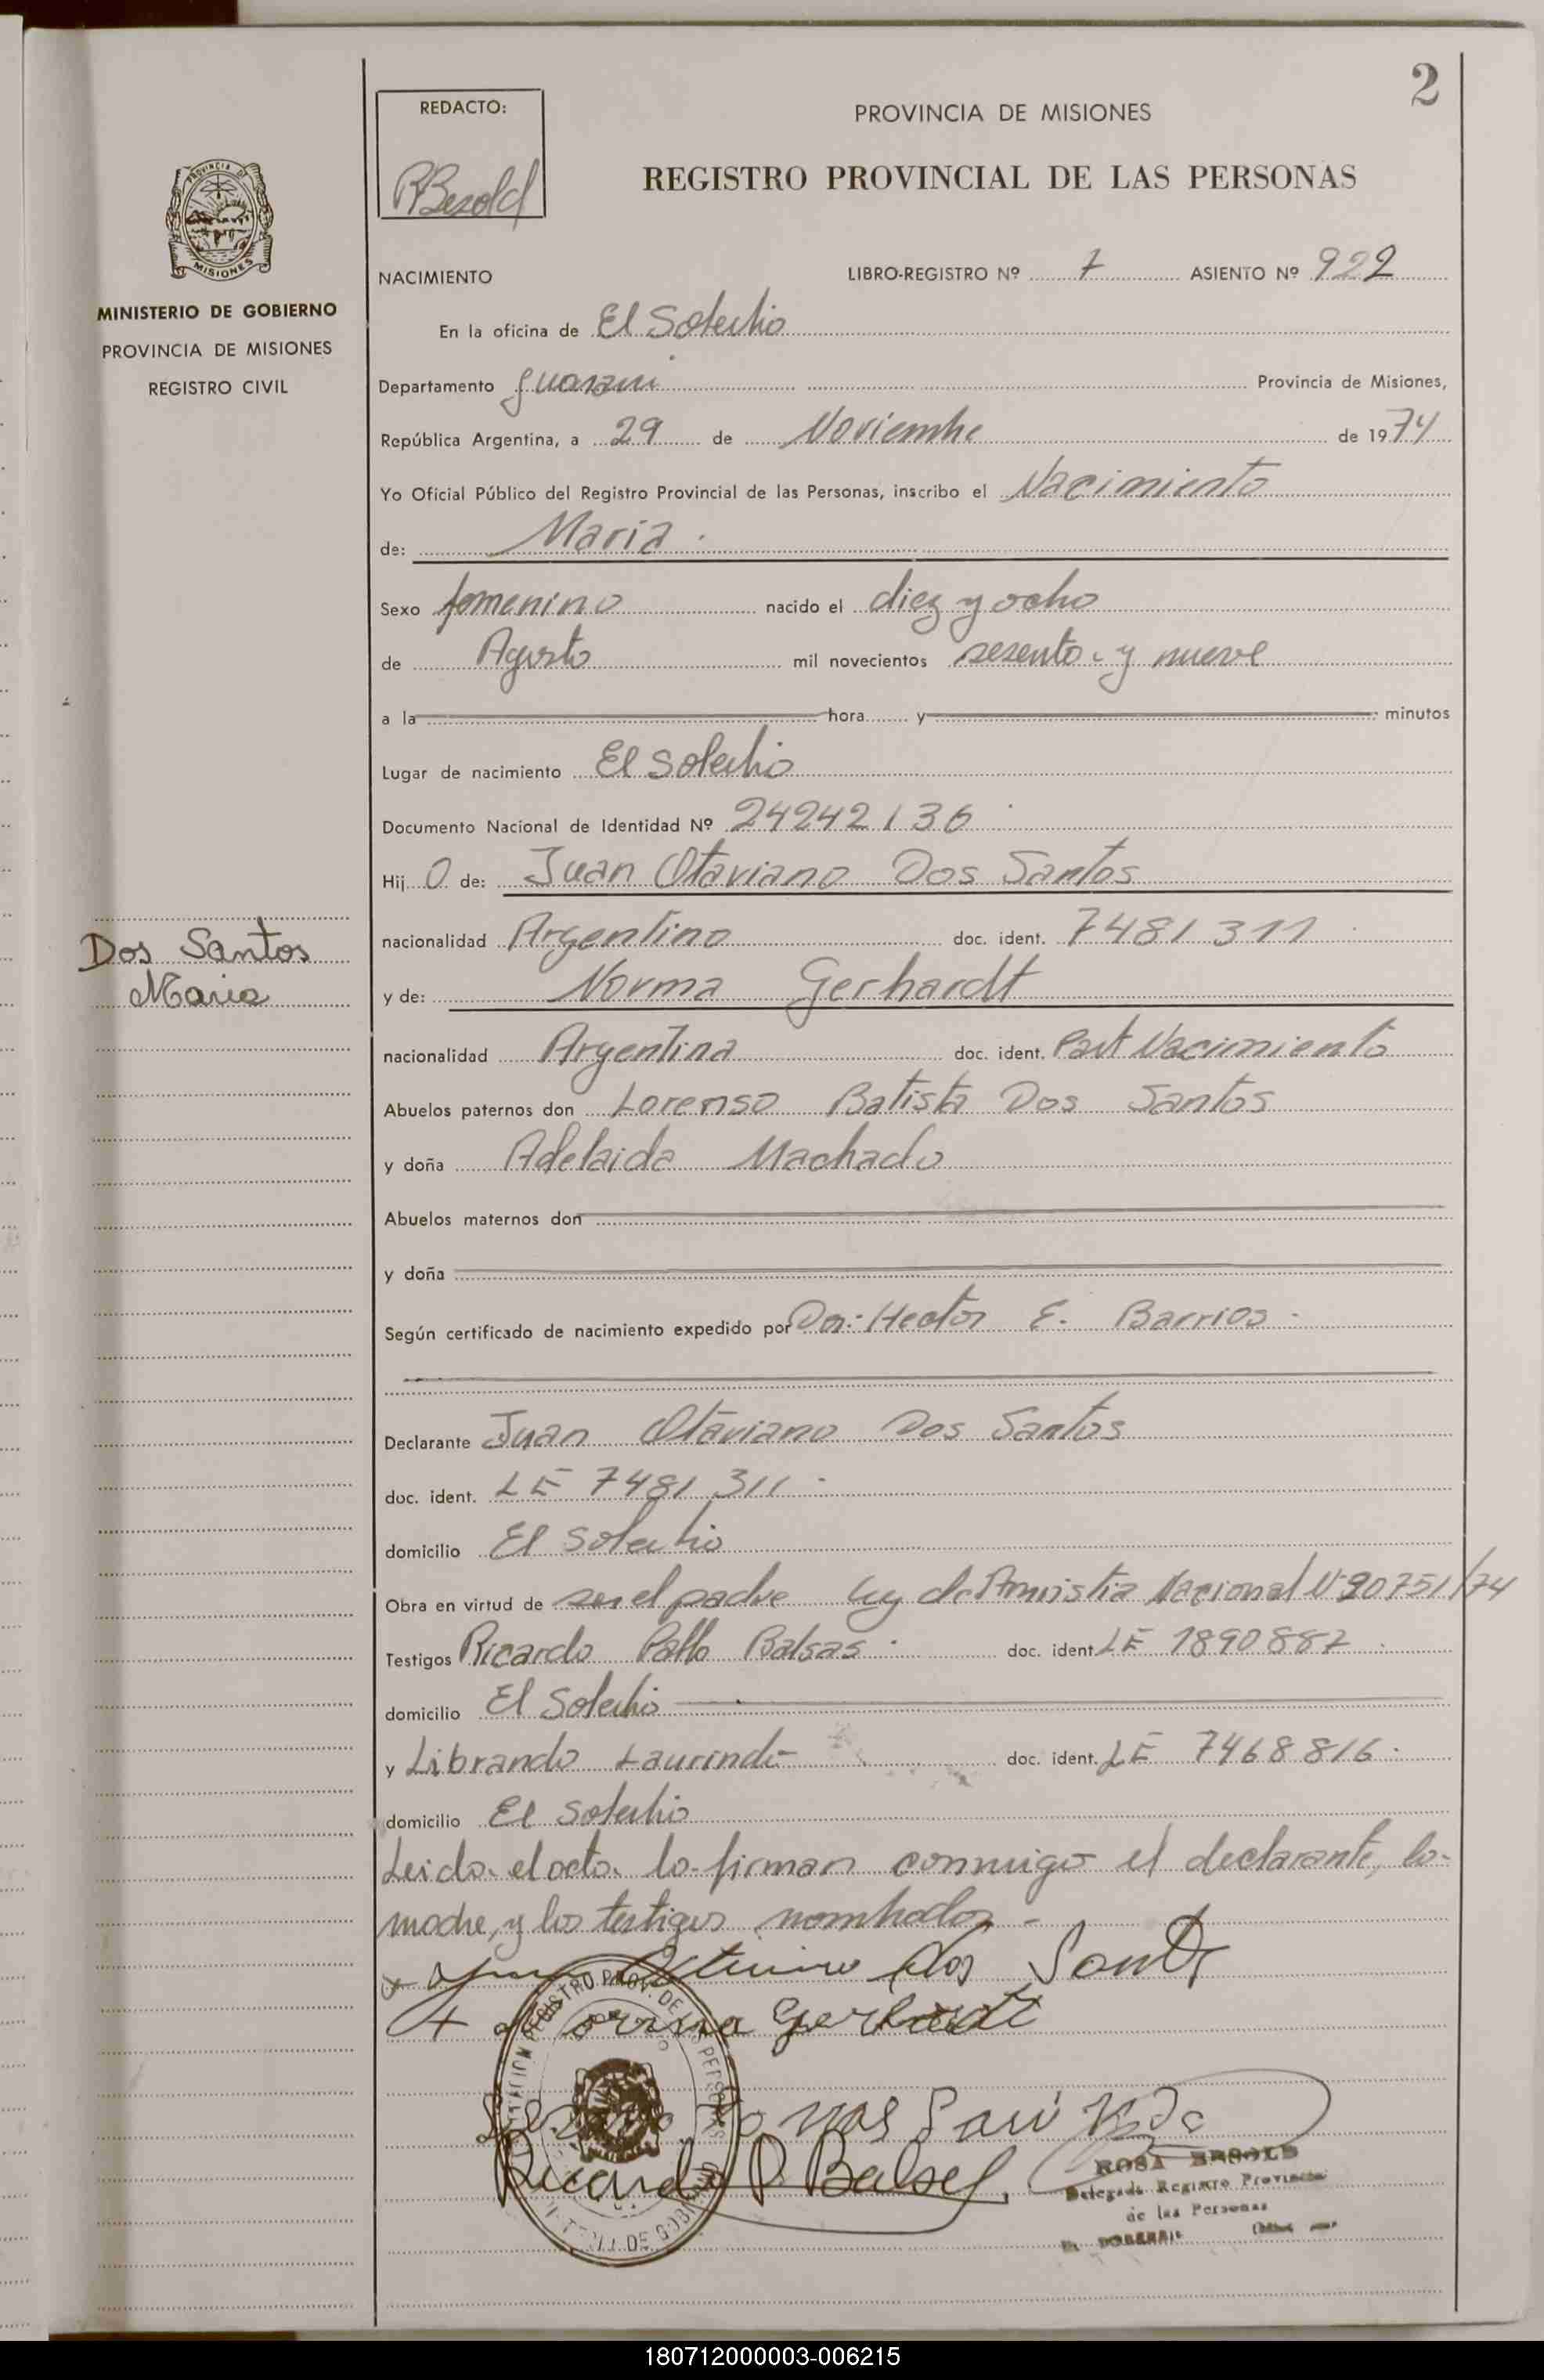 2
REDACTO:
RBezold
PROVINCIA DE MISIONES
REGISTRO PROVINCIAL DE LAS PERSONAS
PROVINCIA DE
MISIONES
MINISTERIO DE GOBIERNO
PROVINCIA DE MISIONES
REGISTRO CIVIL
NACIMIENTO LIBRO-REGISTRO Nº 7 ASIENTO Nº 922
En la oficina de El Soberbio
Departamento Guarani Provincia de Misiones,
República Argentina, a 29 de Noviembre de 1974
Yo Oficial Público del Registro Provincial de las Personas, inscribo el Nacimiento
de: Maria
Sexo femenino nacido el diez y ocho
de Agosto mil novecientos sesenta y nueve
a la hora y minutos
Lugar de nacimiento El Soberbio
Documento Nacional de Identidad Nº 24242136
Hij O de: Juan Otaviano Dos Santos
Dos Santos
Maria
nacionalidad Argentino doc. ident. 7481311
y de: Norma Gerhardt
nacionalidad Argentina doc. ident. Part Nacimiento
Abuelos paternos don Lorenso Batista Dos Santos
y doña Adelaida Machado
Abuelos maternos don
y doña
Según certificado de nacimiento expedido por Dr. Hector E. Barrios
Declarante Juan Otaviano Dos Santos
doc. ident. LE 7481311
domicilio El Soberbio
Obra en virtud de ser el padre Ley de Amnistia Nacional Nº 20751/74
Testigos Ricardo Pablo Balsas doc. ident. LE 1890887
domicilio El Soberbio
y Librando Laurindo doc. ident. LE 7468816
domicilio El Soberbio
Leida el acta la firman conmigo el declarante, la
madre, y los testigos nombrados
x Juan Otaviano dos Santos
x Norma Gerhardt
Ricardo P. Balsas
ROSA BEZOLD
Delegada Registro Provincial
de las Personas
180712000003-006215